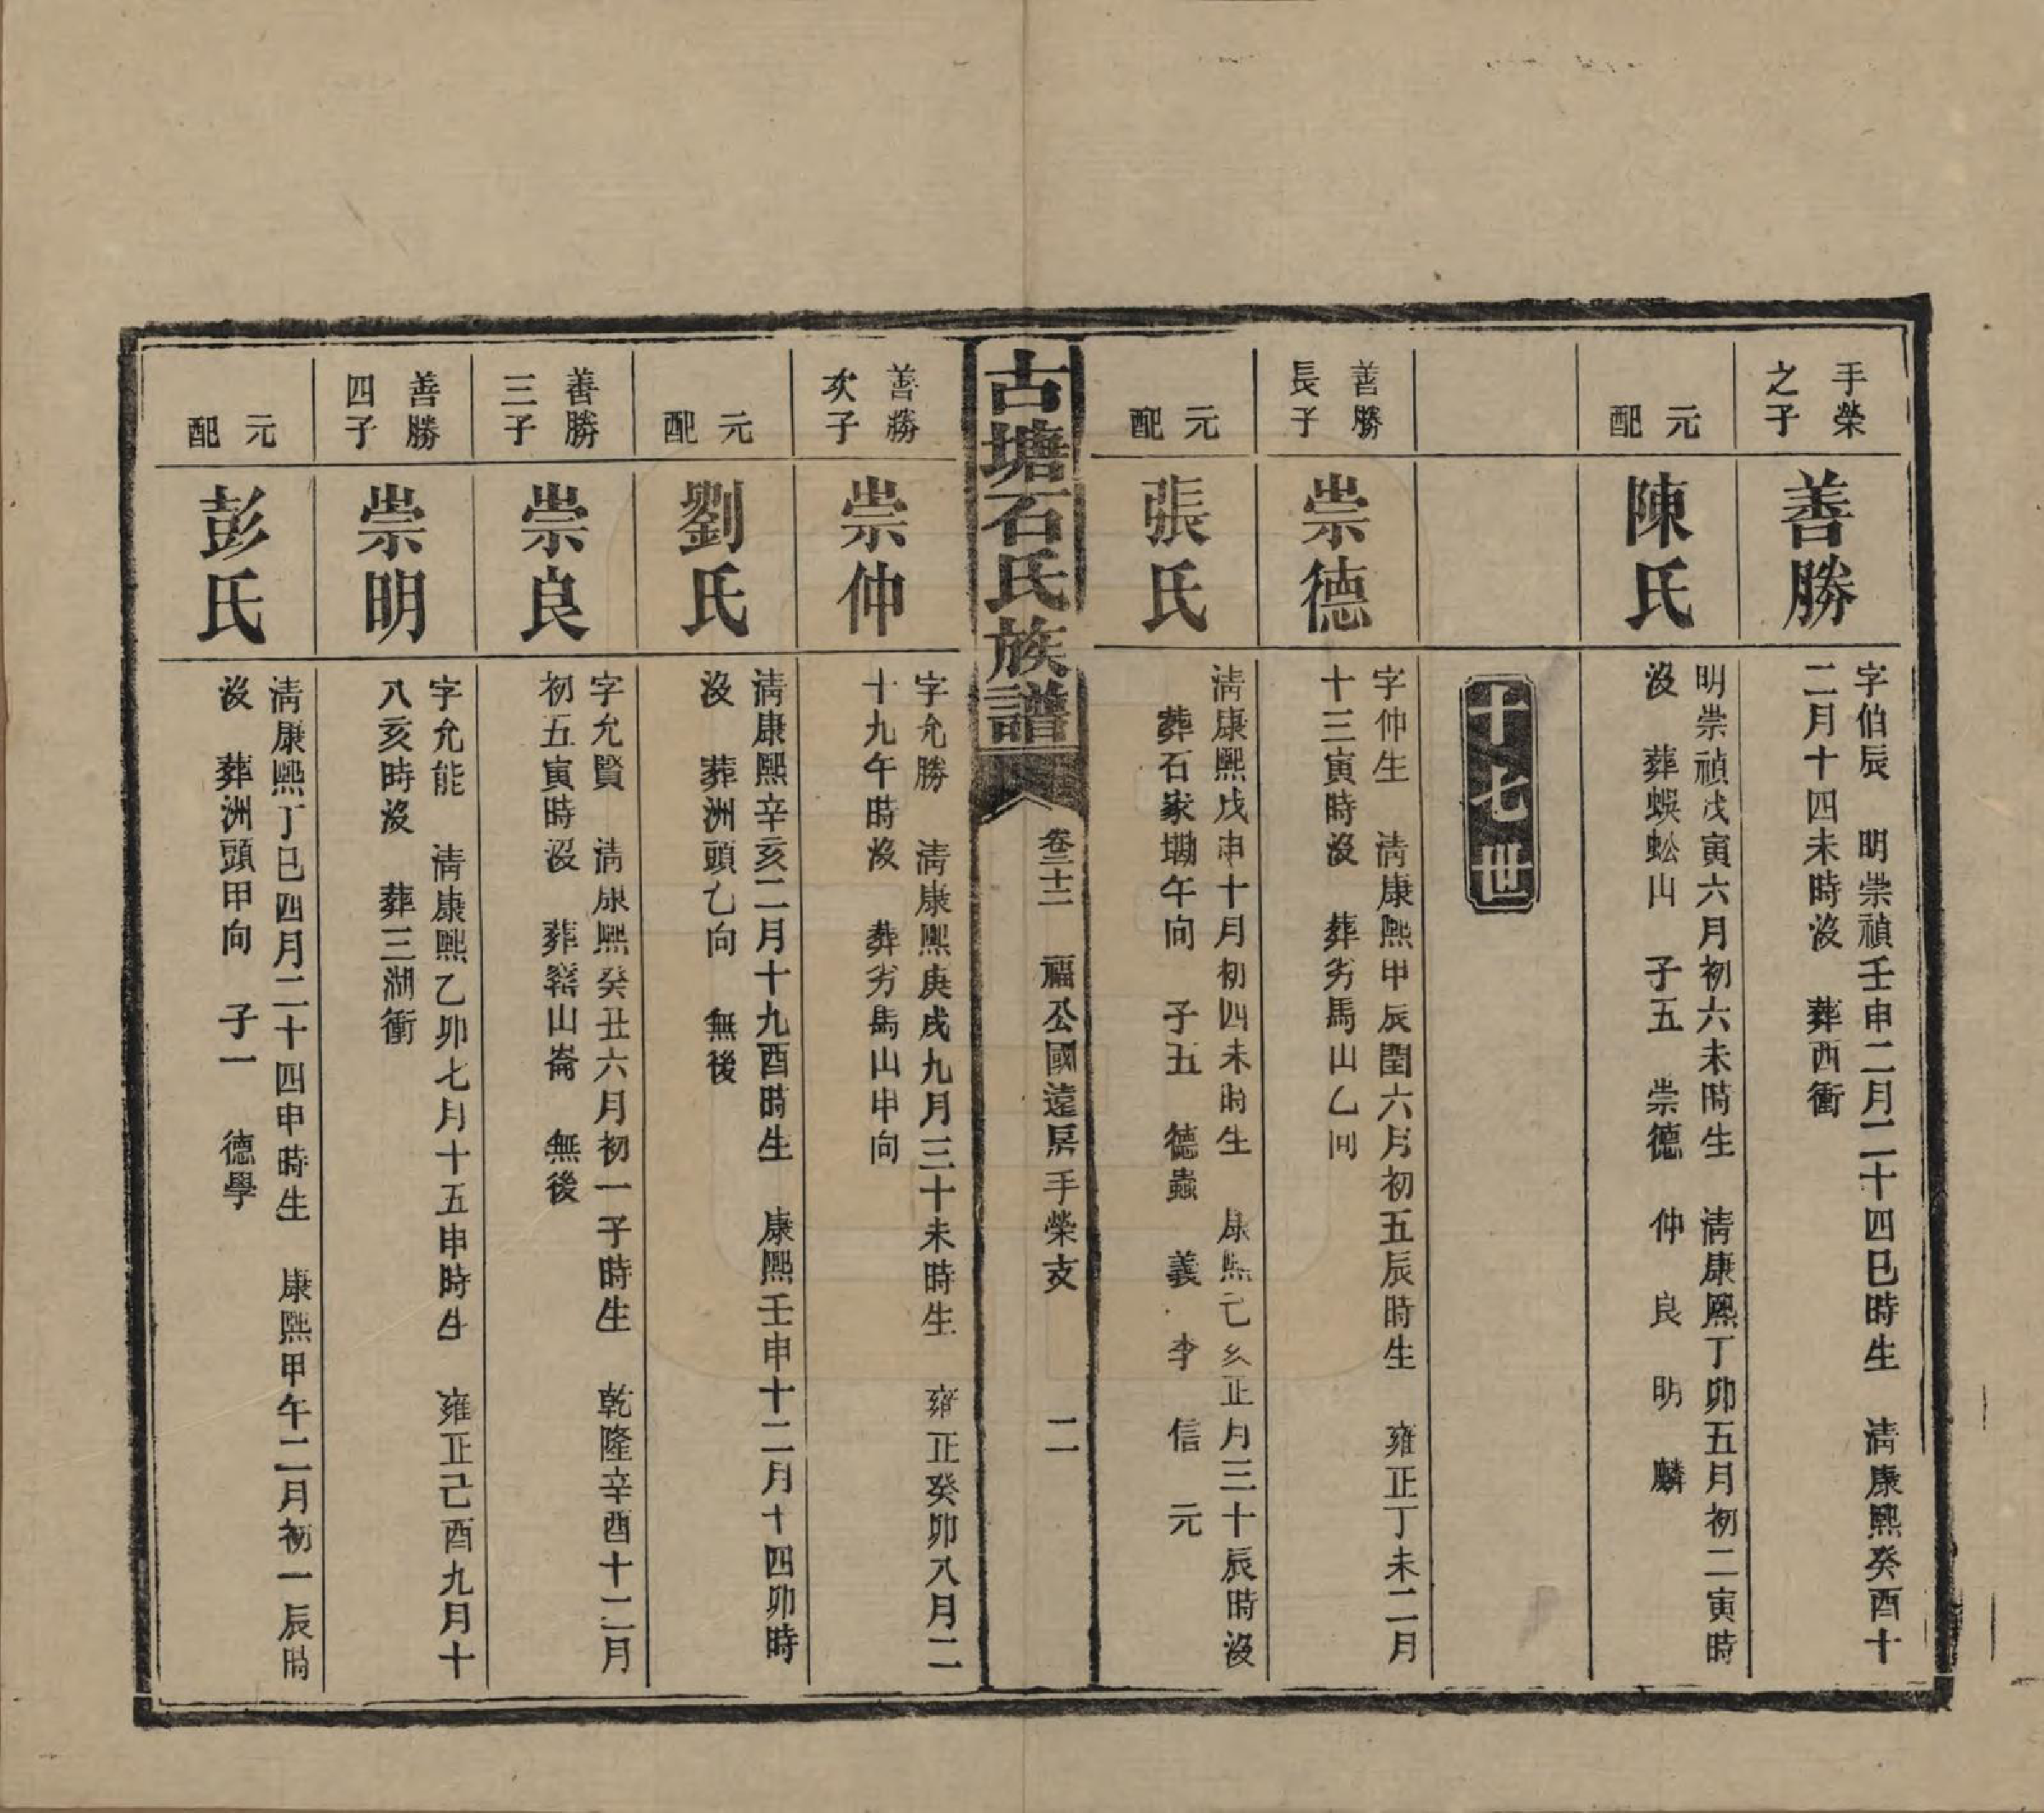 手榮
之子
善勝
字伯辰　明崇禎壬申二月二十四巳時生　清康熙癸酉十
二月十四未時沒　葬西衝
元
配
陳氏
明崇禎戊寅六月初六未時生　清康熙丁卯五月初二寅時
沒　葬蜈蚣山　子五　崇德　仲　良　明　麟
十七世
善勝
長子
崇德
字仲生　清康熙甲辰閏六月初五辰時生　雍正丁未二月
十三寅時沒　葬劣馬山乙向
元
配
張氏
清康熙戊申十月初四未時生　康熙己亥正月三十辰時沒
葬石家塝午向　子五　德蟲　義　李　信　元
古塘石氏族譜
卷二十二　福公國遠房手榮支　二
善勝
次子
崇仲
字允勝　清康熙庚戌九月三十未時生　雍正癸卯八月二
十九午時沒　葬劣馬山申向
元
配
劉氏
清康熙辛亥二月十九酉時生　康熙壬申十二月十四卯時
沒　葬洲頭乙向　無後
善勝
三子
崇良
字允賢　清康熙癸丑六月初一子時生　乾隆辛酉十二月
初五寅時沒　葬窰山崙　無後
善勝
四子
崇明
字允能　清康熙乙卯七月十五申時生　雍正己酉九月十
八亥時沒　葬三湖衝
元
配
彭氏
清康熙丁巳四月二十四申時生　康熙甲午二月初一辰時
沒　葬洲頭甲向　子一　德學